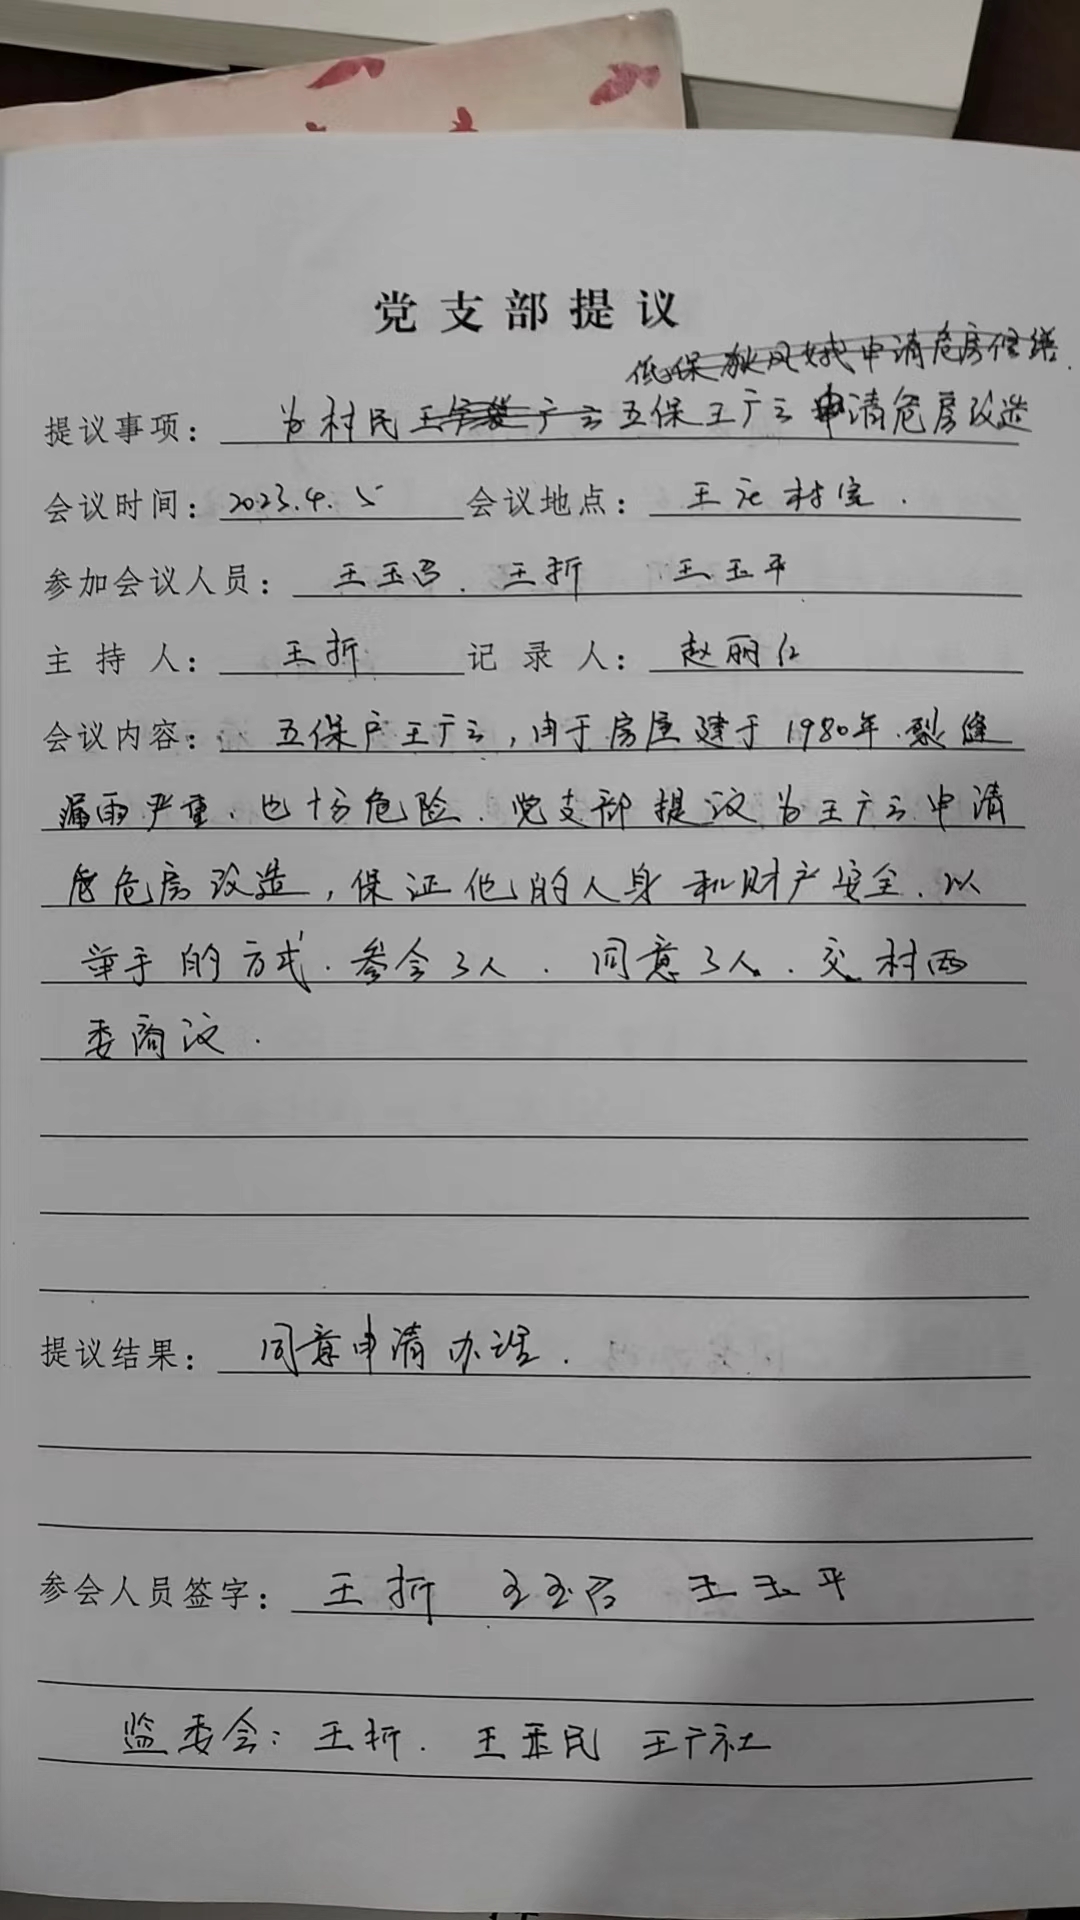 党支部提议
低保 申请危房修缮.
提议事项: 为村民王 广云五保王广云申请危房改造
会议时间: 2023.4.5 会议地点: 王 村室.
参加会议人员: 王玉召. 王折 王玉平
主持人: 王折 记录人: 赵丽仁
会议内容: 五保户王广云,由于房屋建于1980年.裂缝
漏雨严重.也十分危险.党支部提议为王广云申请
危房改造,保证他的人身和财产安全.以
举手的方式.参会3人.同意3人.交村两
委商议.
提议结果: 同意申请办理.
参会人员签字: 王折 王玉召 王玉平
监委会: 王折. 王 民 王广社